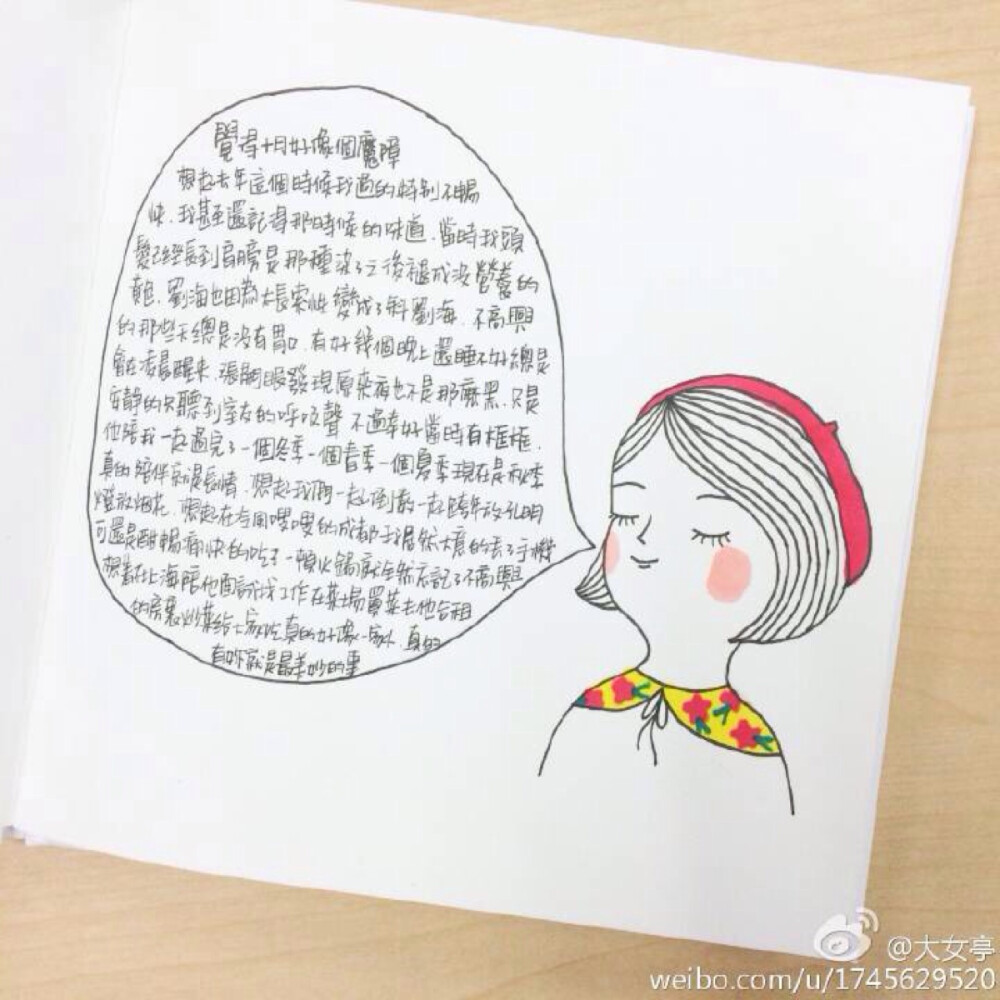 覺得十月好像個魔障
想起去年這個時候我過的特別不暢
快.我甚至還記得那時候的味道.當時我頭
髮已經長到肩膀是那種染了之後褪成沒營養的
顏色.劉海也因為太長索性變成了斜劉海.不高興
的那些天總是沒有胃口.有好幾個晚上還睡不好總是
會在凌晨醒來.張開眼發現原來夜也不是那麼黑.只是
安靜的只聽到室友的呼吸聲 不過幸好當時有框框.
他陪我一起過完了一個冬季一個春季一個夏季現在是秋季
真的陪伴就是長情.想起我們一起倒數一起跨年放孔明
燈放烟花.想起在 的成都 居然大意的丟了手機
可還是酣暢痛快的吃了一頓火鍋就全然忘記了不高興
想着在上海陪他面試找工作在菜場買菜去他合租
的房裏炒菜給大家吃真的好像一家人.真的
有你就是最美妙的事